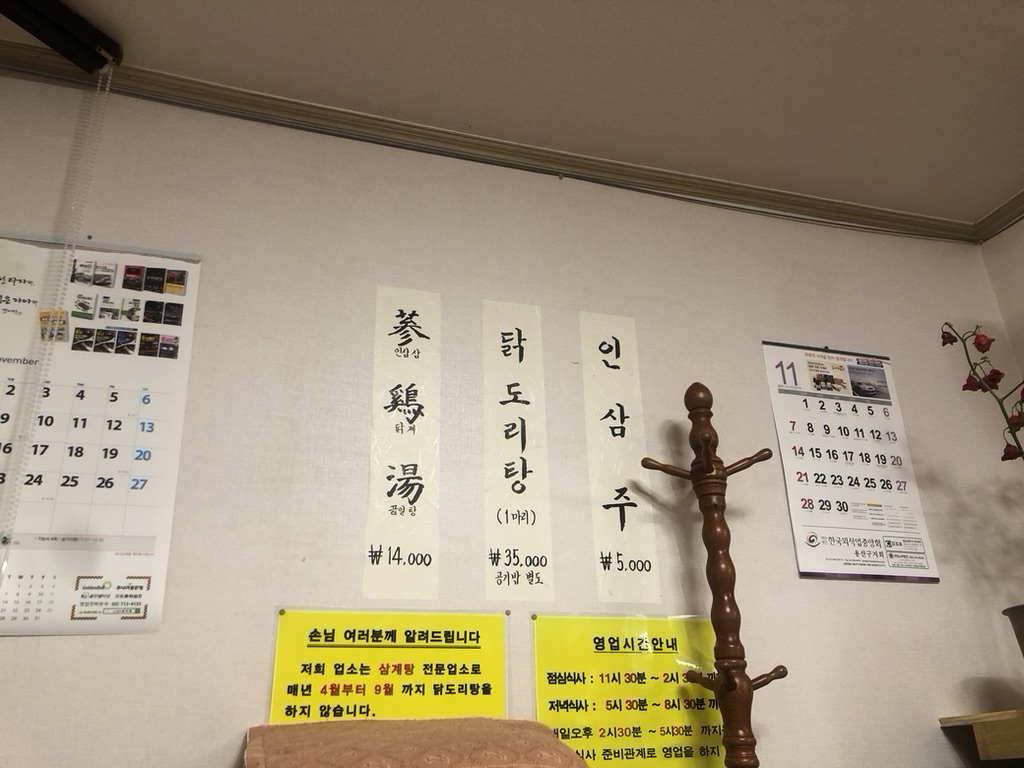 November
2 3 4 5 6
9 10 11 12 13
16 17 18 19 20
23 24 25 26 27
蔘
인삼삼
鷄
닭계
湯
끓일탕
₩14.000
닭
도
리
탕
(1마리)
₩35.000
공기밥 별도
인
삼
주
₩5.000
11
1 2 3 4 5 6
7 8 9 10 11 12 13
14 15 16 17 18 19 20
21 22 23 24 25 26 27
28 29 30
한국외식업중앙회
용산구지회
손님 여러분께 알려드립니다
저희 업소는 삼계탕 전문업소로
매년 4월부터 9월 까지 닭도리탕을
하지 않습니다.
영업시간안내
점심식사 : 11시 30분 ~ 2시
저녁식사 : 5시 30분 ~ 8시 30분
매일오후 2시30분 ~ 5시30분 까지
식사 준비관계로 영업을 하지